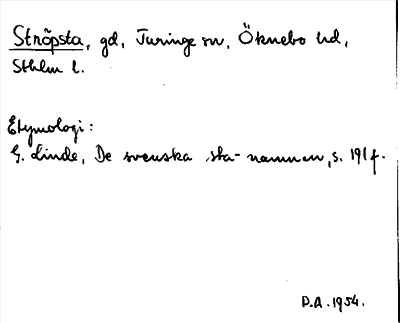 Ströpsta, gd, Turinge sn, Öknebo hd,
Sthlm l.
Etymologi:
G. Linde, De svenska sta-namnen, s. 191 f.
P.A. 1954.